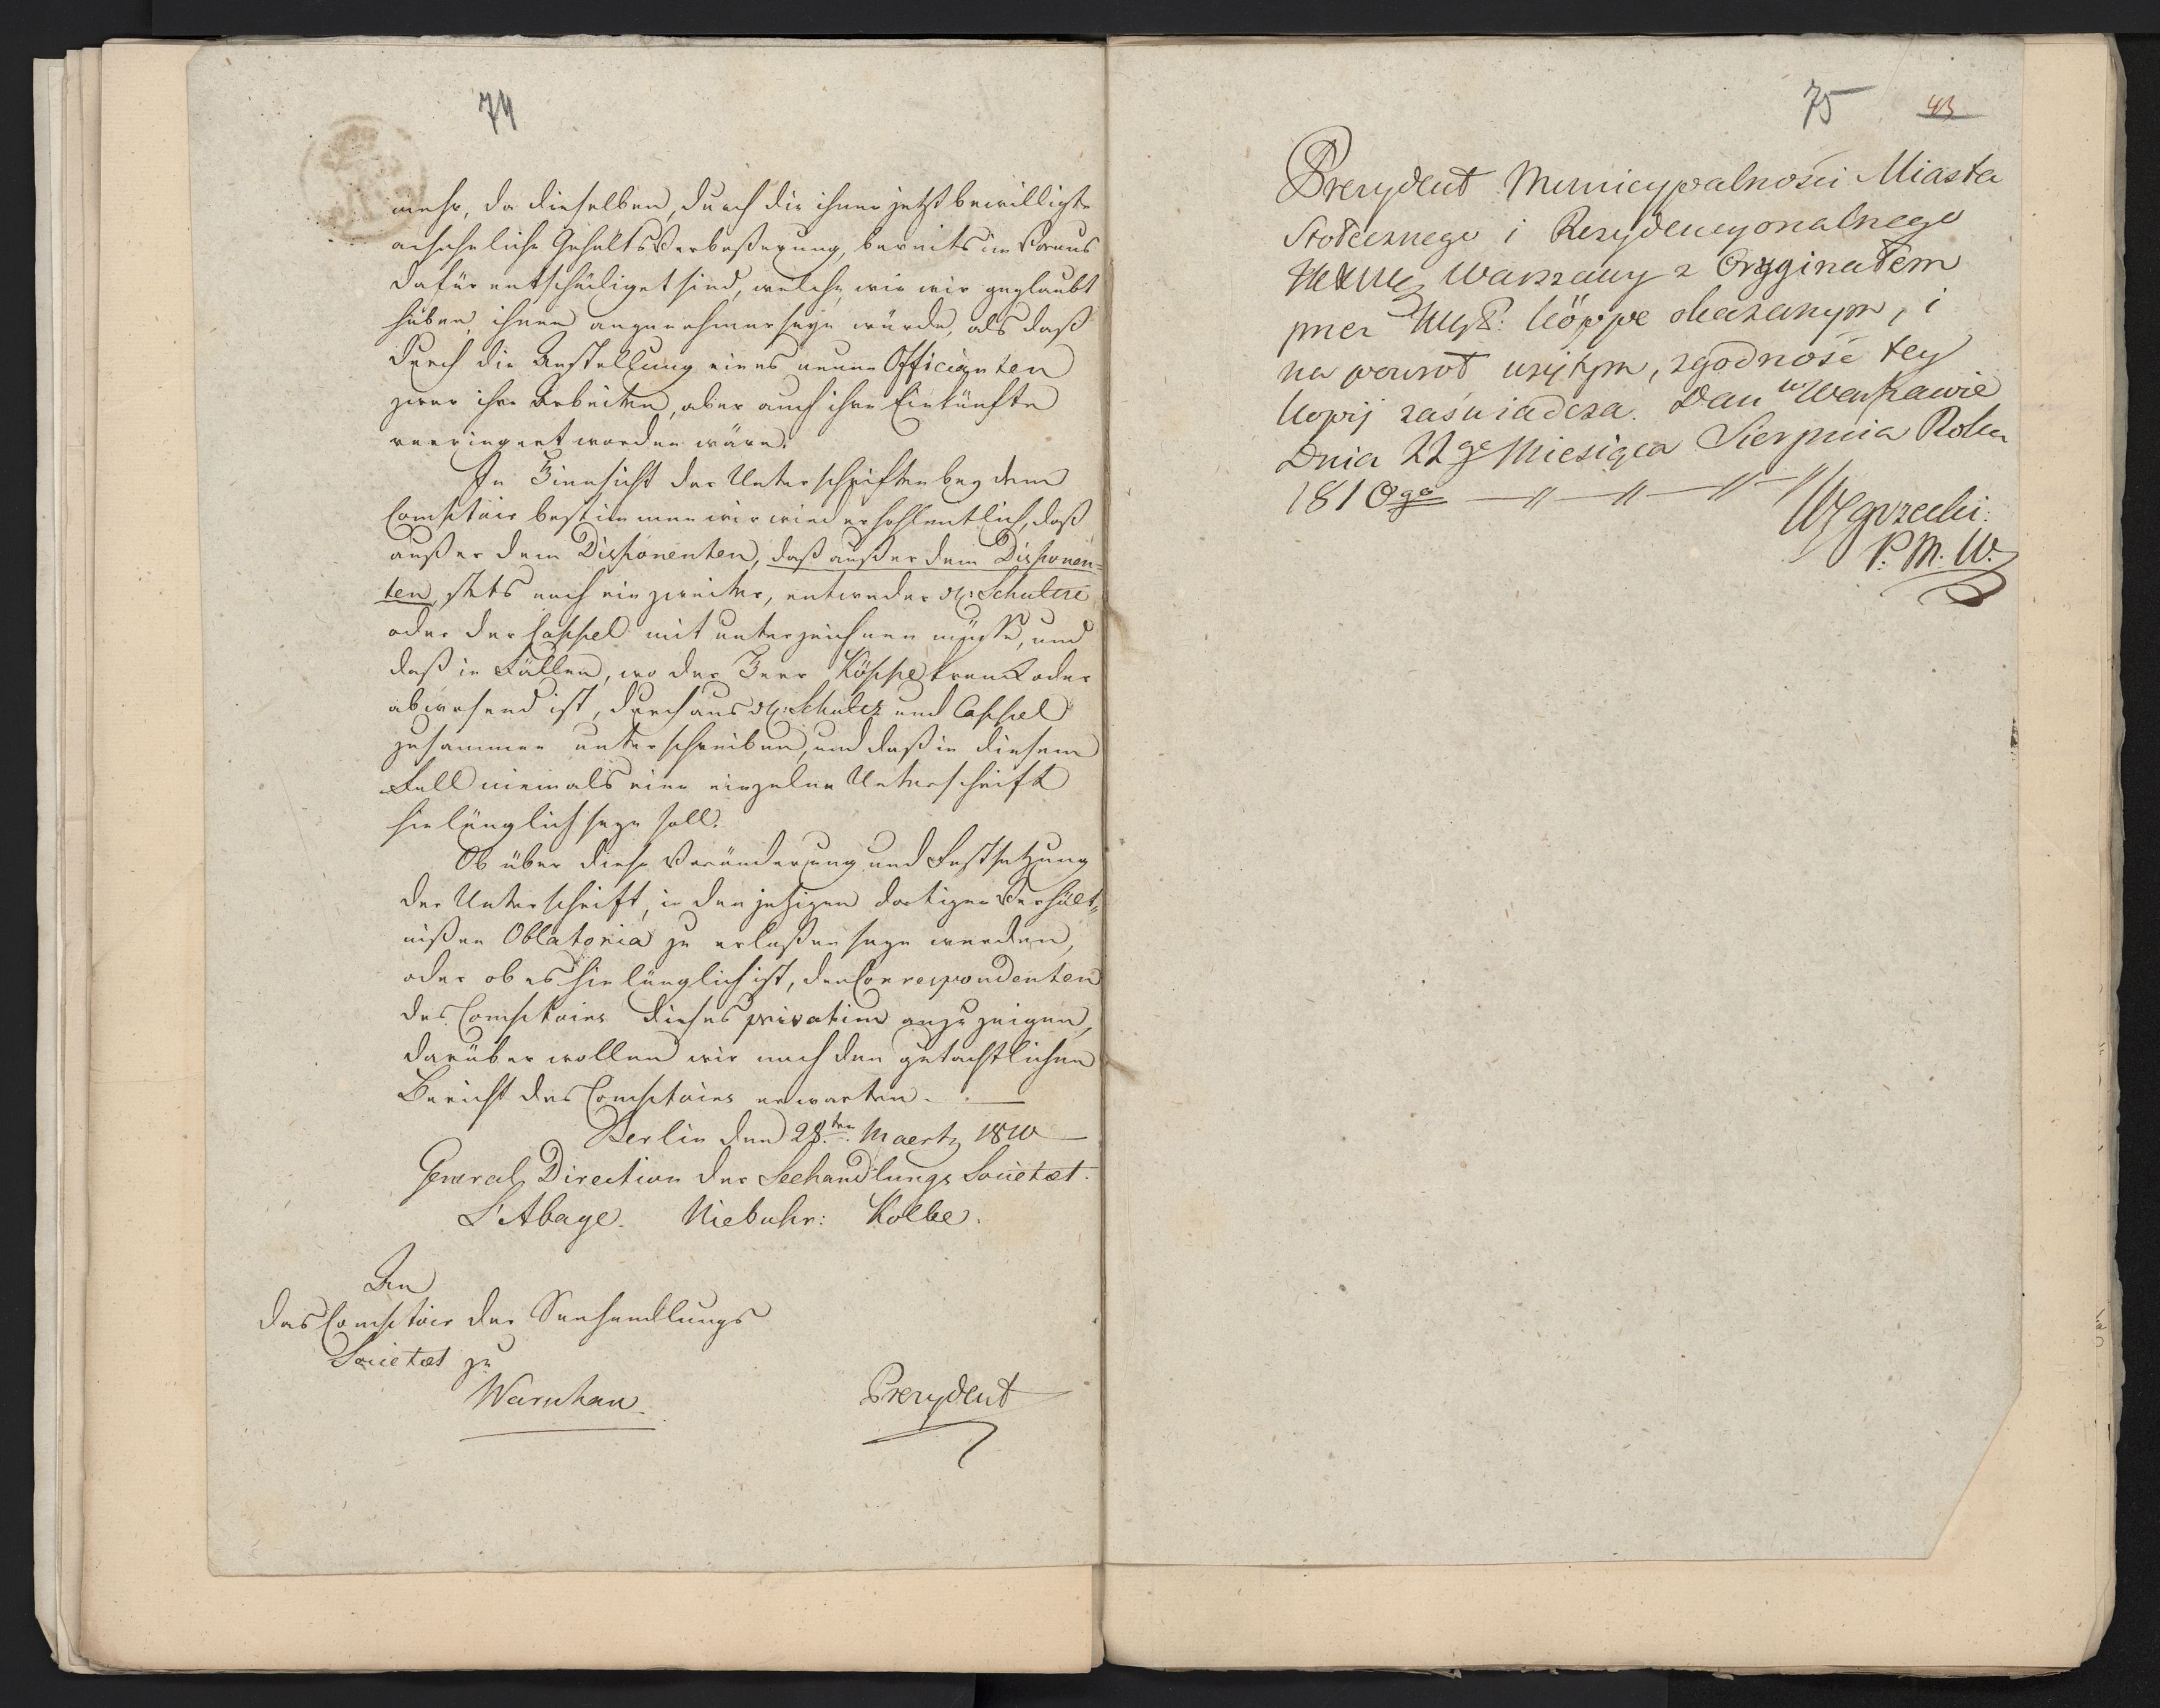 74
mehr, da dieselben, durch die ihnen jetzt bewilligte
ansehnliche GehaltsVerbeßerung, bereits im Voraus
dafür entschädiget sind, welche, wie wir geglaubt
haben, ihnen angenehmer seyn würde, als daß
durch die Anstellung eines neuen Officianten
zwar ihre Arbeiten, aber auch ihre Einkünfte
verringert worden wäre.
In Hinnsicht der Unterschriften bey dem
Comptoir bestimmen wir wiederhohlentlich, daß
außer dem Disponenten, daß außer dem Disponen-
ten, stets noch ein zweiter, entweder H: Schultze
oder der Cassel mit unterzeichnen müsse, und
daß in Fällen, wo der Herr Köppe krank oder
abwesend ist, durchaus H: Schultz und Cassel
zusammen unterschreiben, und daß in diesem
Fall niemals eine einzelne Unterschrift
hinlänglich seyn soll.
Ob über diese Veränderung und Festsetzung
der Unterschrift, in den jetzigen dortigen Verhält„
nißen Oblatoria zu erlaßen seyn werden,
oder ob es hinlänglich ist, den Correspondenten
des Comptoirs dieses privatim anzuzeigen,
darüber wollen wir noch den gutachtlichen
Bericht des Comptoirs erwarten. —
Berlin den 28.ten Maertz 1810 —
General Direction der Seehandlungs Societæt.
L'Abaye. Niebuhr: Kolbe.
An
das Comptoir der Seehandlungs
Societæt zu
Warschau.
Prezydent
75 43
Prezydent Municypalności Miasta
Stołecznego i Rezydencyonalnego
Warszawy z Oryginałem
przez Köppe okazanym, i
na powrót wziętym, zgodność tey
kopij zaświadcza. Dan w Warszawie
Dnia 22go Miesiąca Sierpnia Roku
1810go — // — // — // — //
Węgrzecki:
P. M. W.